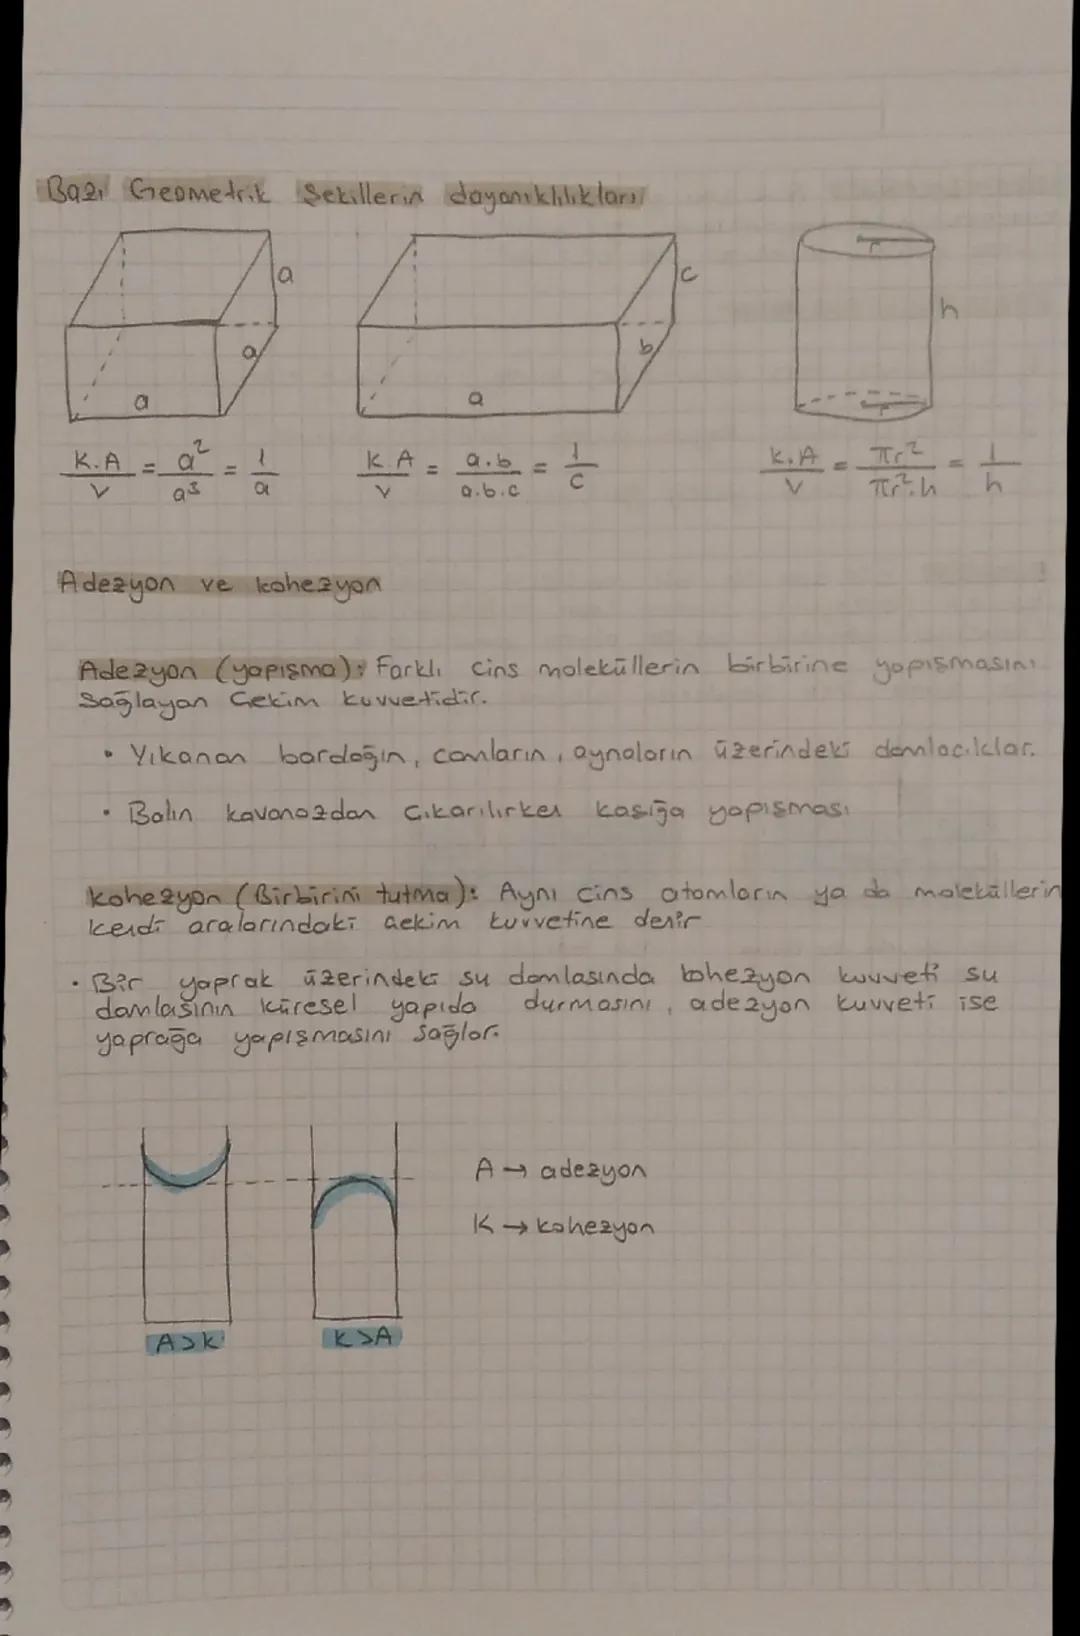 Bazı Geometrik Şekillerin dayanıklılıkları
a
c
h
r
a
b
a
a
r
K.A/V = a²/a³ = 1/a
K.A/V = a.b/a.b.c = 1/c
K.A/V = πr²/πr².h = 1/h
Adezyon ve kohezyon
Adezyon (yapışma): Farklı cins moleküllerin birbirine yapışmasını
Sağlayan Çekim kuvvetidir.
• Yıkanan bardağın, camların, aynaların üzerindeki damlacıklar.
• Balın kavanozdan çıkarılırken kaşığa yapışması
kohezyon (Birbirini tutma): Aynı cins atomların ya da moleküllerin
kendi aralarındaki çekim kuvvetine denir
• Bir yaprak üzerindeki su damlasında kohezyon kuvveti su
damlasının küresel yapıda durmasını, adezyon kuvveti ise
yaprağa yapışmasını sağlar.
A → adezyon
K → kohezyon
A>K
K>A